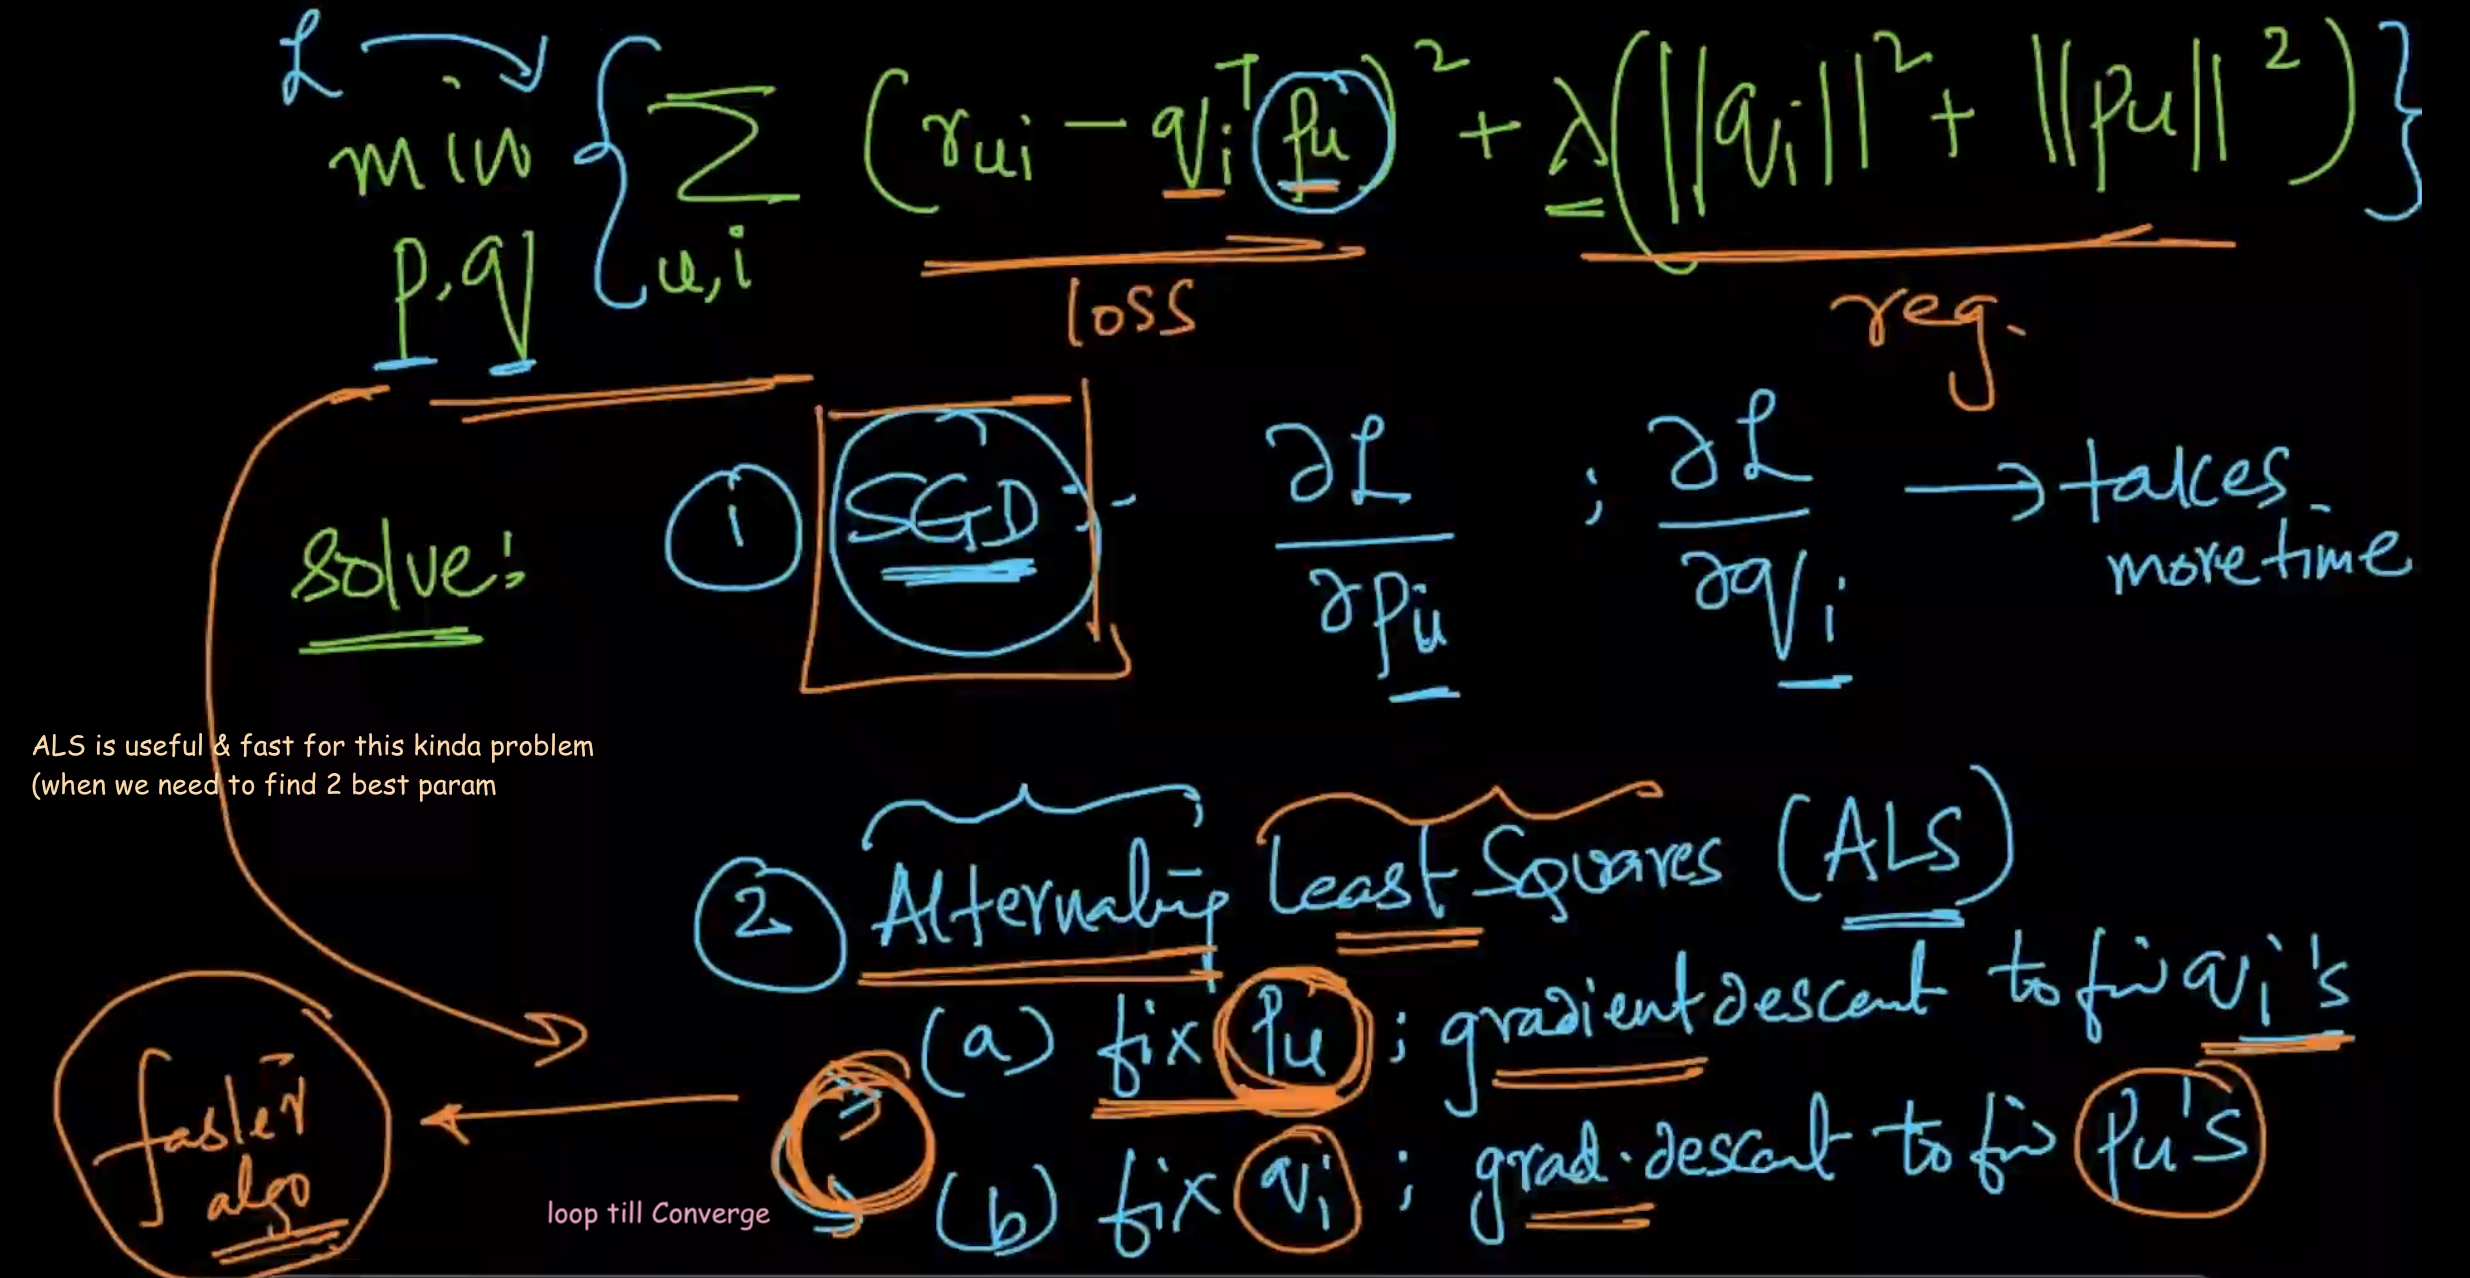 L
min { Σ (rui − qiᵀ pu)² + λ(||qi||² + ||pu||²) }
p,q u,i
loss reg.
solve: 1 SGD :- ∂L/∂pu ; ∂L/∂qi → takes more time
ALS is useful & fast for this kinda problem
(when we need to find 2 best param
2 Alternating Least Squares (ALS)
(a) fix pu ; gradient descent to fin qi's
(b) fix qi ; grad. descent to fin pu's
faster
algo
loop till Converge